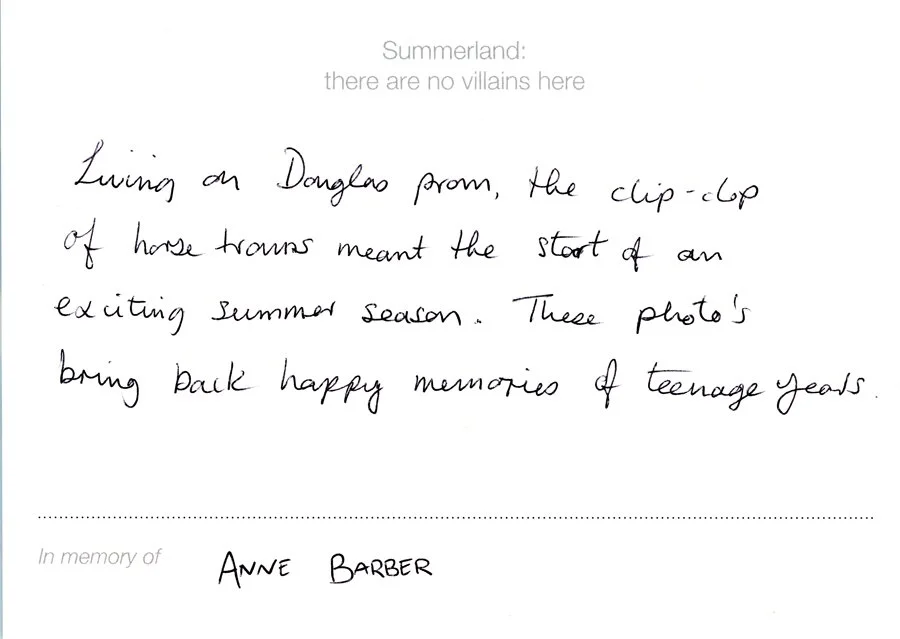 Summerland:
there are no villains here
Living on Douglas prom, the clip-clop
of horse trams meant the start of an
exciting summer season. These photo's
bring back happy memories of teenage years.
In memory of ANNE BARBER